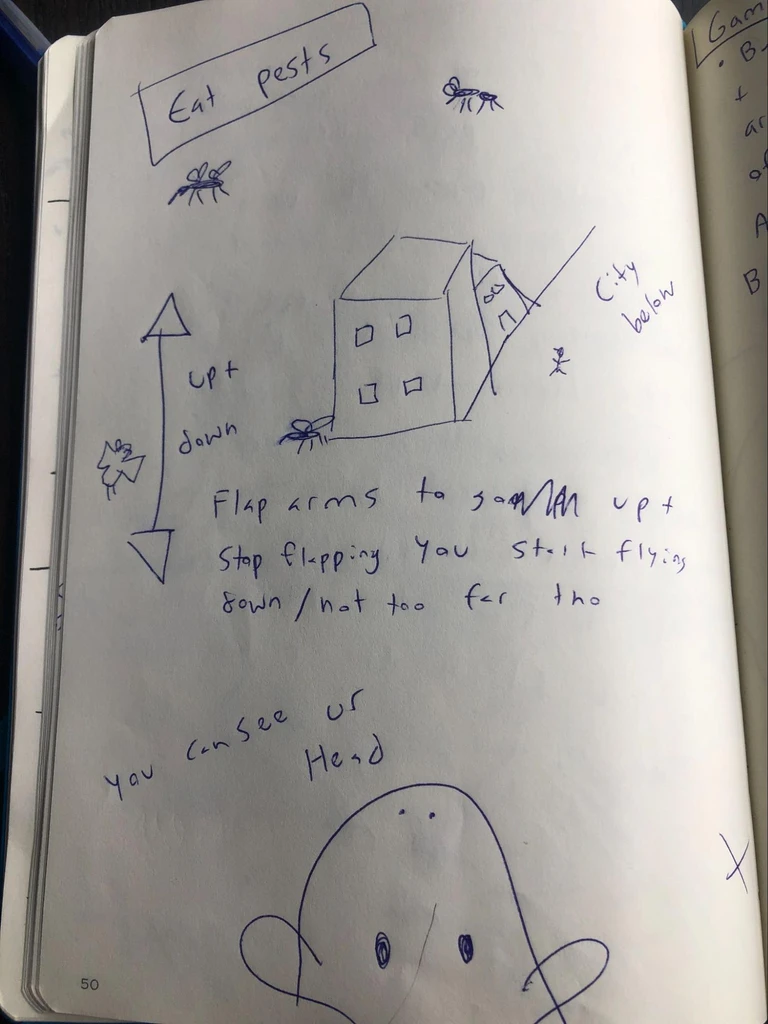 Eat pests
City
below
up +
down
Flap arms to up +
Stop flapping you start flying
down / not too far tho
you can see ur
Head
50
Gam
• B
+
ar
of
A
B
X